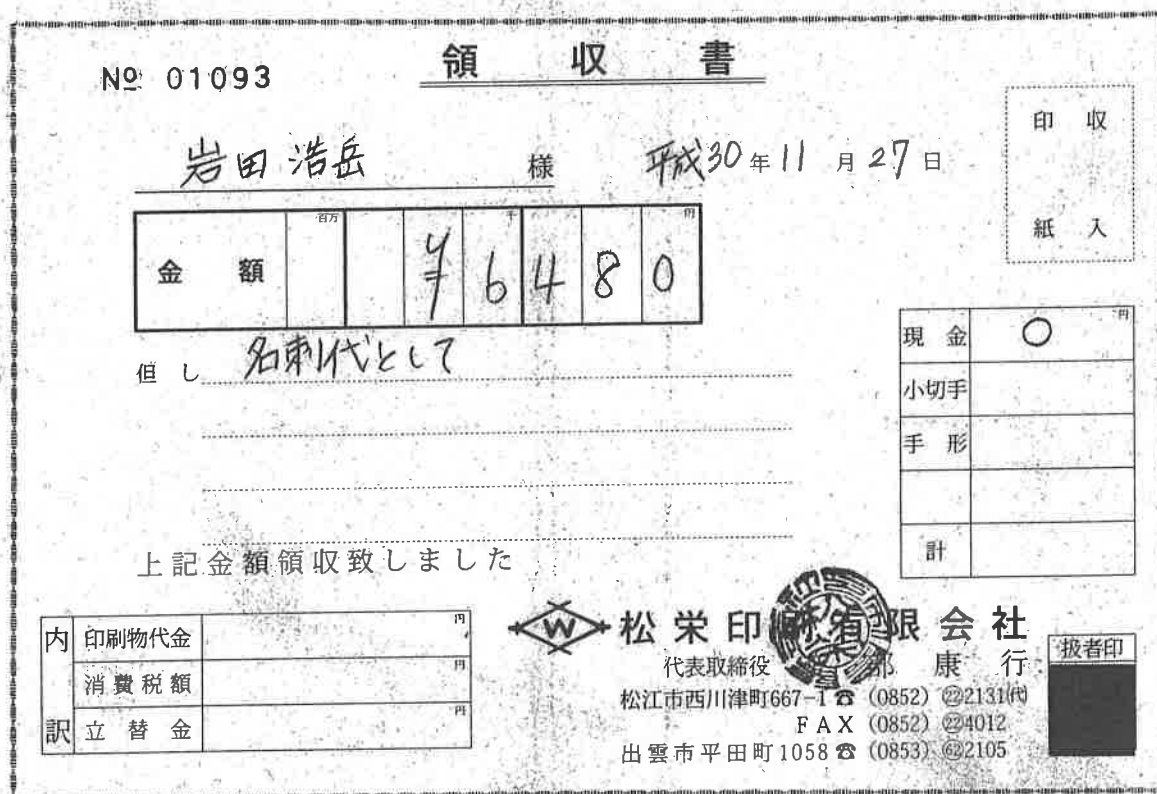 領収書
№ 01093
収入印紙
岩田 浩岳 様 平成30年11月27日
金額 百万 千 円 ¥6480
但し 名刺代として
現金 ○ 円
小切手
手形
計
上記金額領収致しました
内訳
印刷物代金 円
消費税額 円
立替金 円
W 松栄印刷有限会社
代表取締役 部康行
松江市西川津町667-1 ☎ (0852) ㉒2131㈹
FAX (0852) ㉒4012
出雲市平田町1058 ☎ (0853) 622105
扱者印